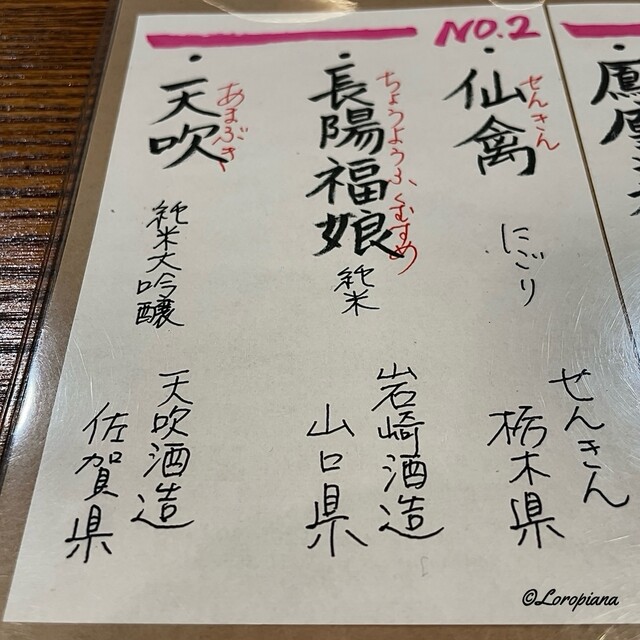 NO.2
鳳凰美
・仙禽
せんきん
にごり
せんきん
栃木県
・長陽福娘
ちょうようふくむすめ
純米
岩崎酒造
山口県
・天吹
あまぶき
純米大吟醸
天吹酒造
佐賀県
©Loropiana